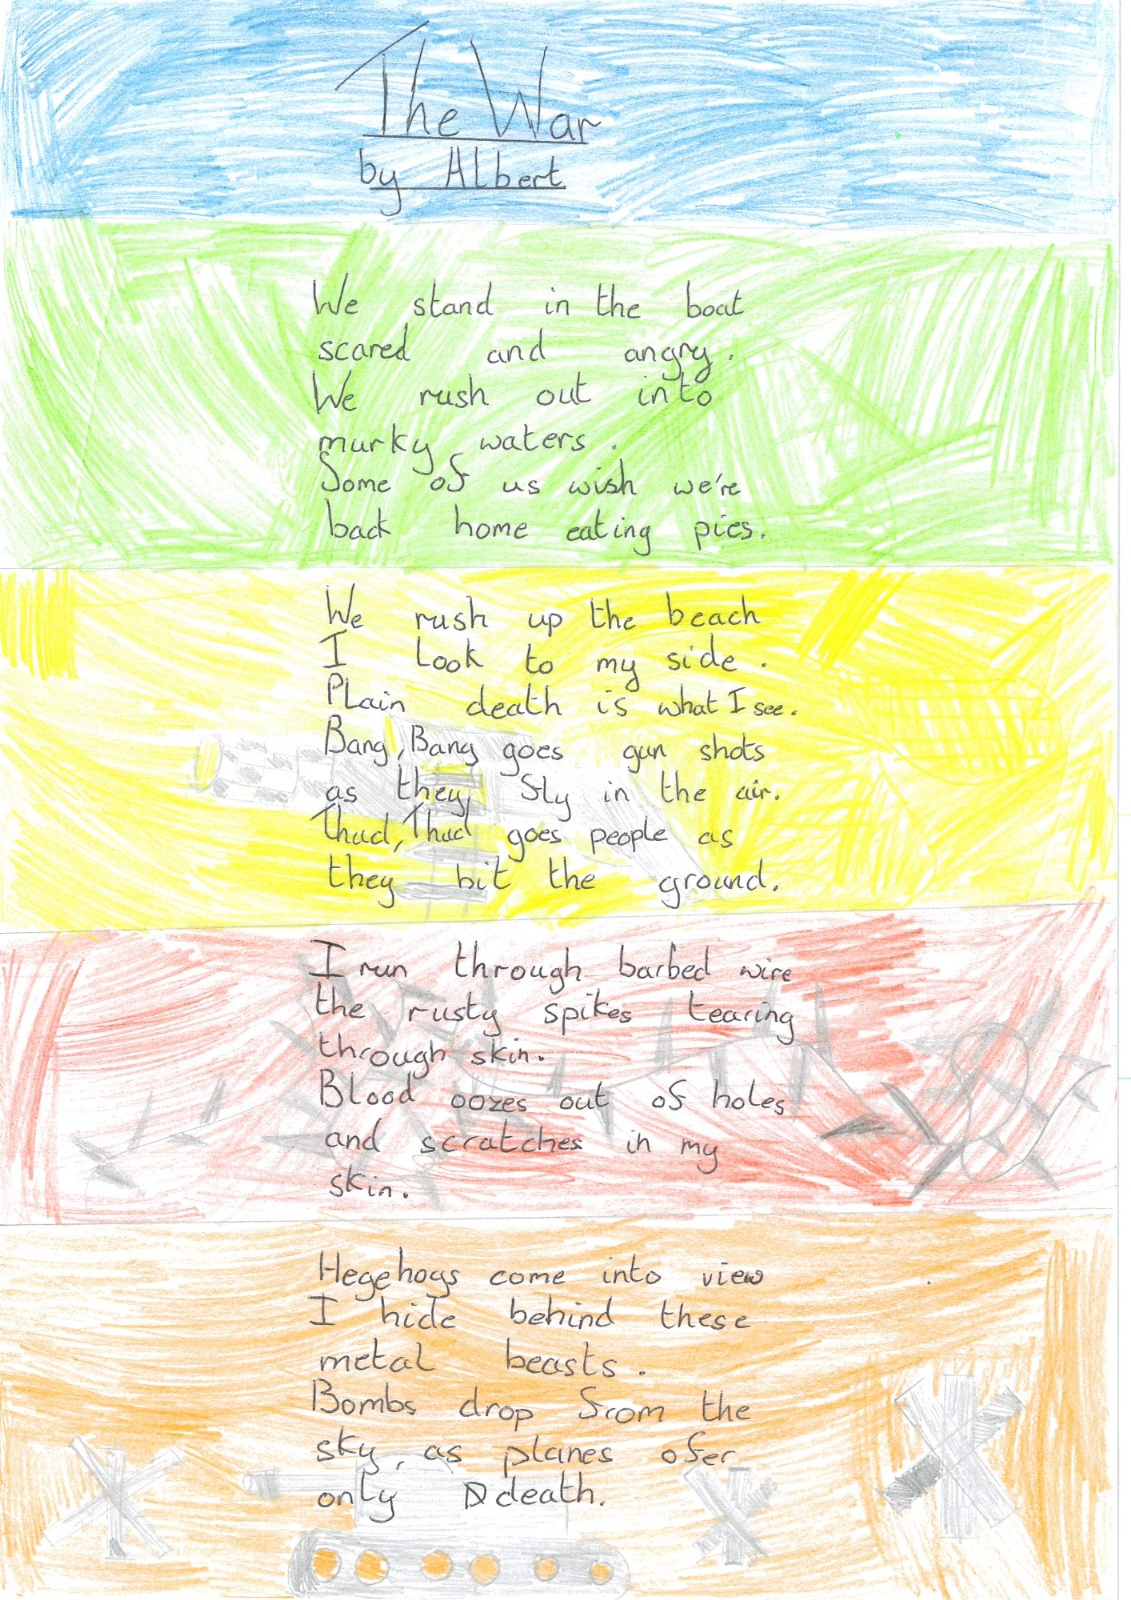 The War
by Albert
We stand in the boat
scared and angry.
We rush out into
murky waters.
Some of us wish we're
back home eating pies.
We rush up the beach
I look to my side.
Plain death is what I see.
Bang, Bang goes gun shots
as they fly in the air.
Thud, Thud goes people as
they hit the ground.
I run through barbed wire
the rusty spikes tearing
through skin.
Blood oozes out of holes
and scratches in my
skin.
Hegehogs come into view
I hide behind these
metal beasts.
Bombs drop from the
sky, as planes ofer
only death.